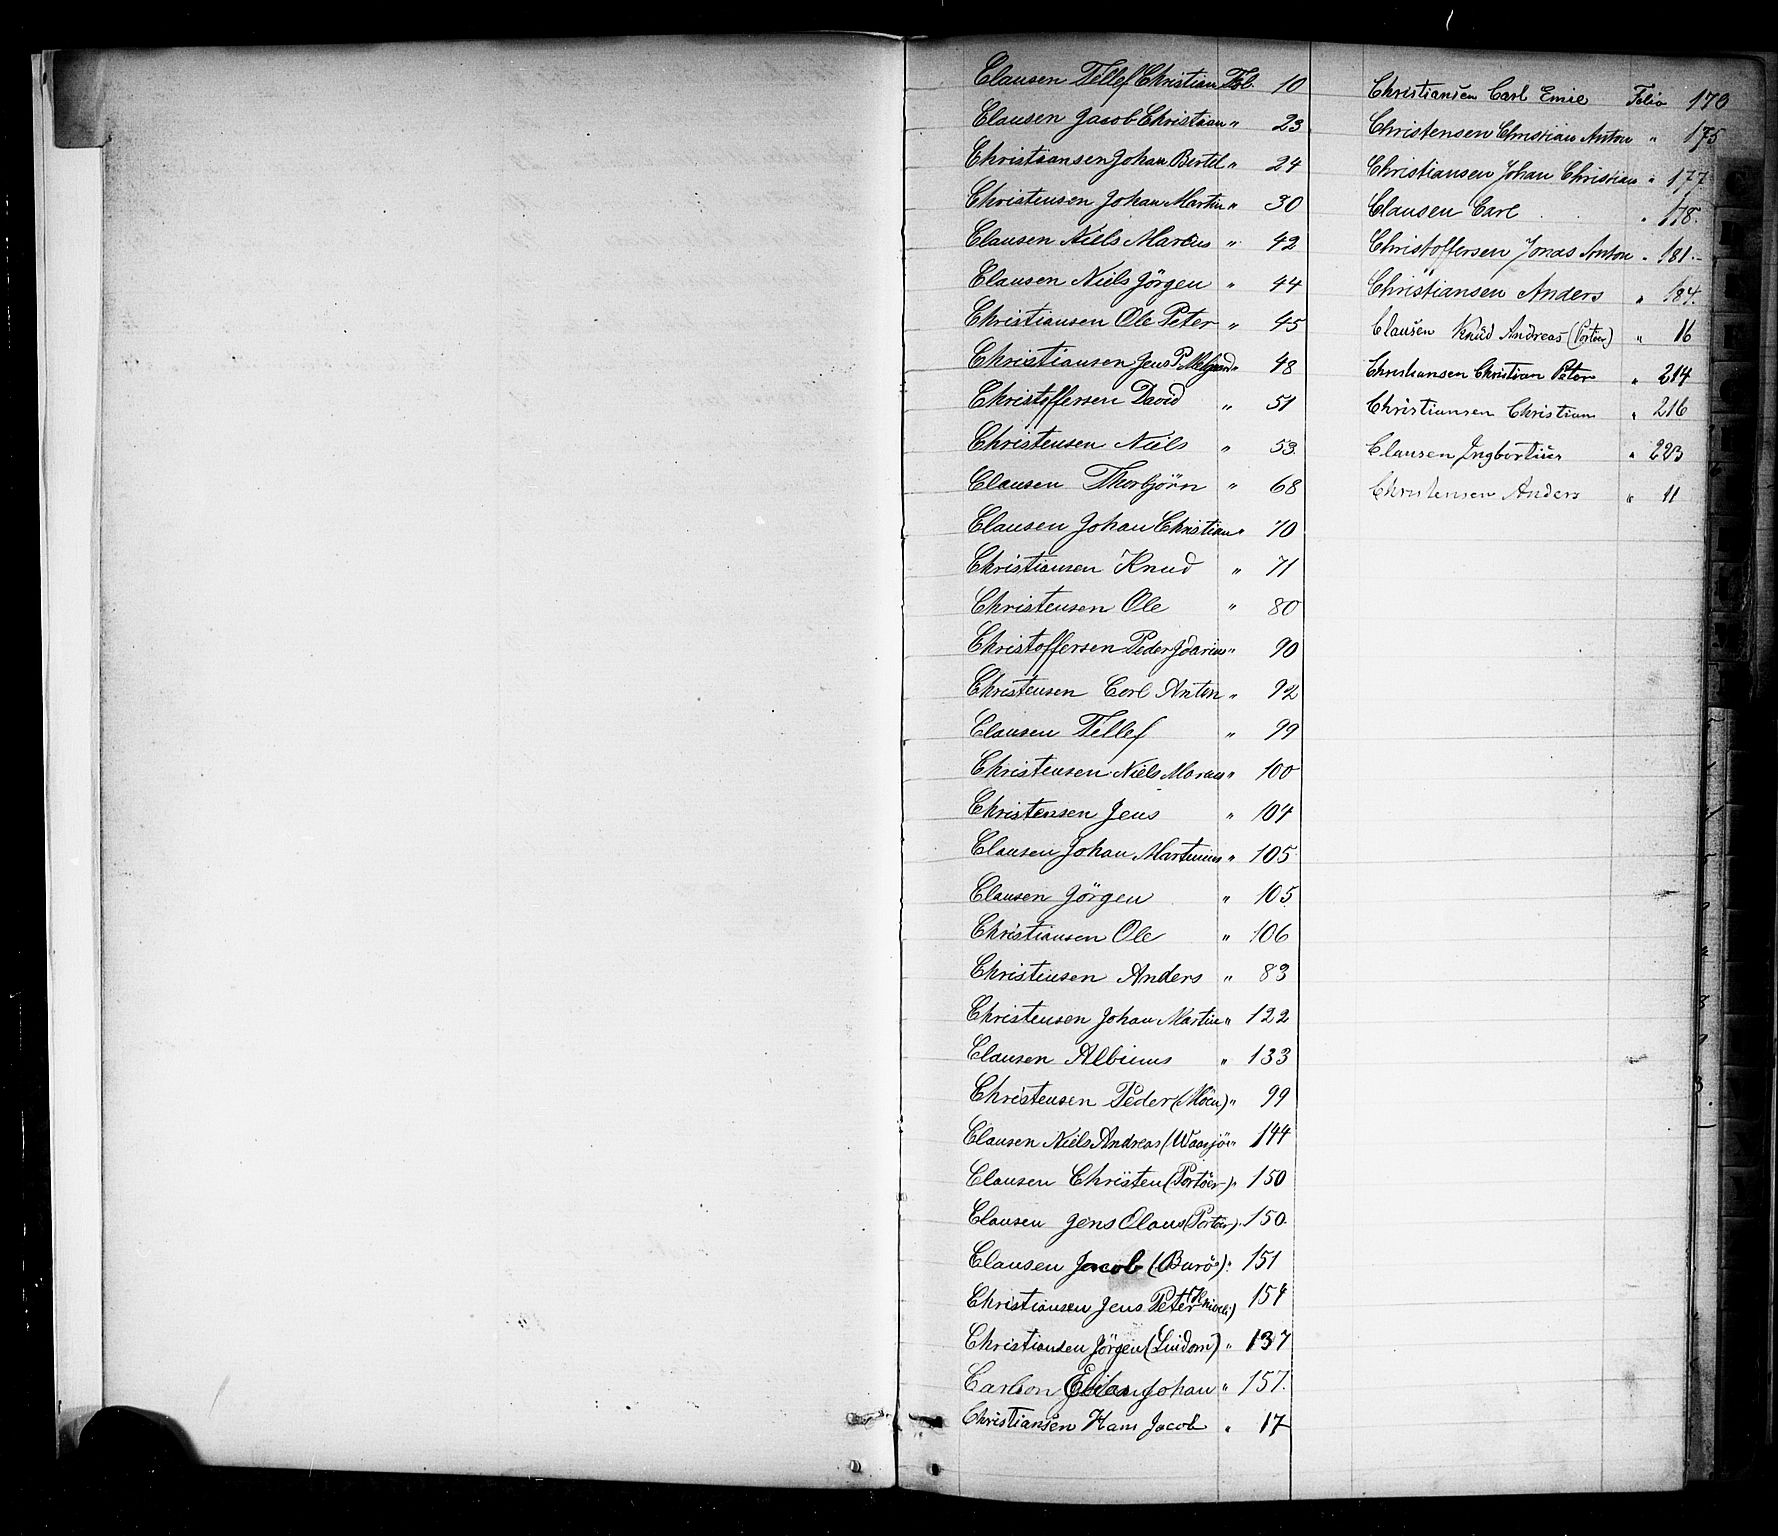 Clausen Tellef Christian Fol. 10
Clausen Jacob Christian " 23
Christiansen Johan Bertel " 24
Christensen Johan Martin " 30
Clausen Niels Marcus " 42
Clausen Niels Jörgen " 44
Christiansen Ole Peter " 45
Christiansen Jens P. " 48
Christoffersen David " 51
Christensen Niels " 53
Clausen Thorbjörn " 68
Clausen Johan Christian " 70
Christiansen Knud " 71
Christensen Ole " 80
Christoffersen Peder " 90
Christensen Carl Anton " 92
Clausen Tellef " 99
Christensen Niels " 100
Christensen Jens " 104
Clausen Johan Martinius " 105
Clausen Jörgen " 105
Christiansen Ole " 106
Christensen Anders " 83
Christensen Johan Martin " 122
Clausen Albinus " 133
Christensen Peder (Möen) " 99
Clausen Niels Andreas " 144
Clausen Christen (Portöer) " 150
Clausen Jens Olaus (Portöer) " 150
Clausen Jacob (Burö) " 151
Christiansen Jens Peter 154
Christiansen Jörgen (Lindom) " 137
Carlson Johan " 157.
Christiansen Hans Jacob " 17
Christiansen Carl Emil Folio 170
Christensen Christian Anton " 175
Christiansen Johan Christian " 177
Clausen Carl " 178.
Christoffersen Jonas Anton " 181
Christiansen Anders " 184.
Clausen Knud Andreas (Portöer) " 16
Christiansen Christian Peter " 214
Christiansen Christian " 216
Clausen Ingbortius " 223
Christensen Anders " 11